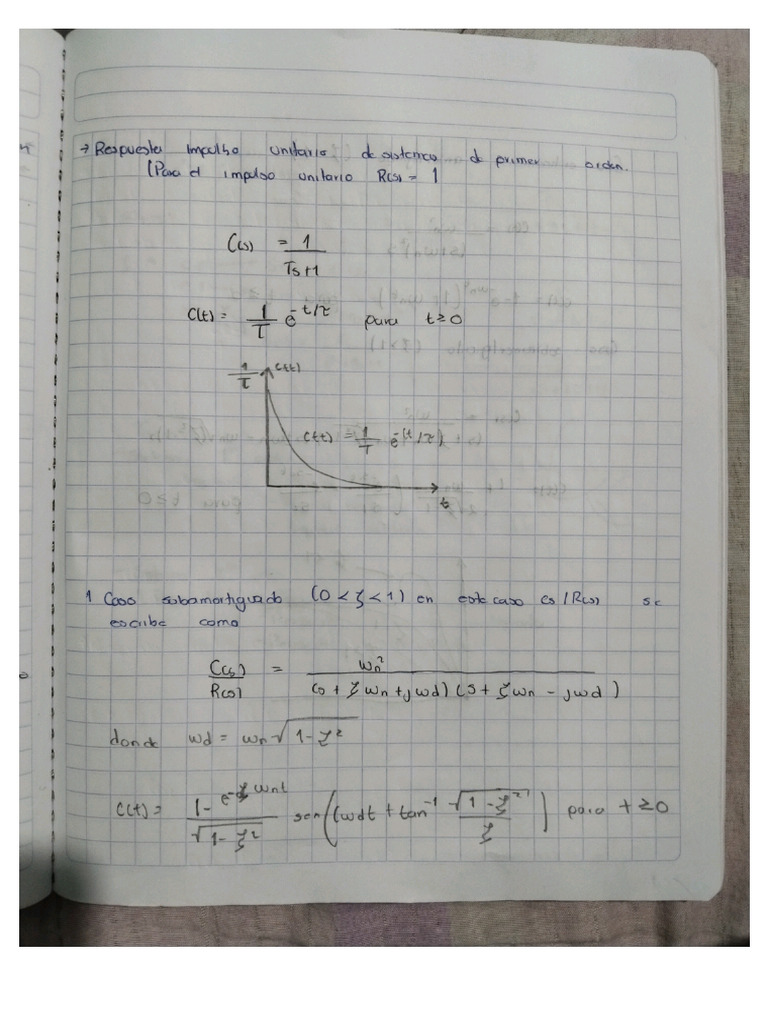 → Respuesta impulso unitario de sistemas de primer orden.
(Para el impulso unitario R(s) = 1
C(s) = 1 / Ts+1
C(t) = 1/τ e^-t/τ para t≥0
1/τ C(t)
C(t) = 1/T e^-(t/τ)
t
1 Caso subamortiguado (0 < ζ < 1) en este caso Cs/R(s) se
escribe como
C(s)/R(s) = wn² / (s + ζwn + jwd)(s + ζwn - jwd)
donde wd = wn √1-ζ²
C(t) = 1 - e^-ζwnt / √1-ζ² sen((wdt + tan⁻¹ √1-ζ² / ζ) para t ≥0